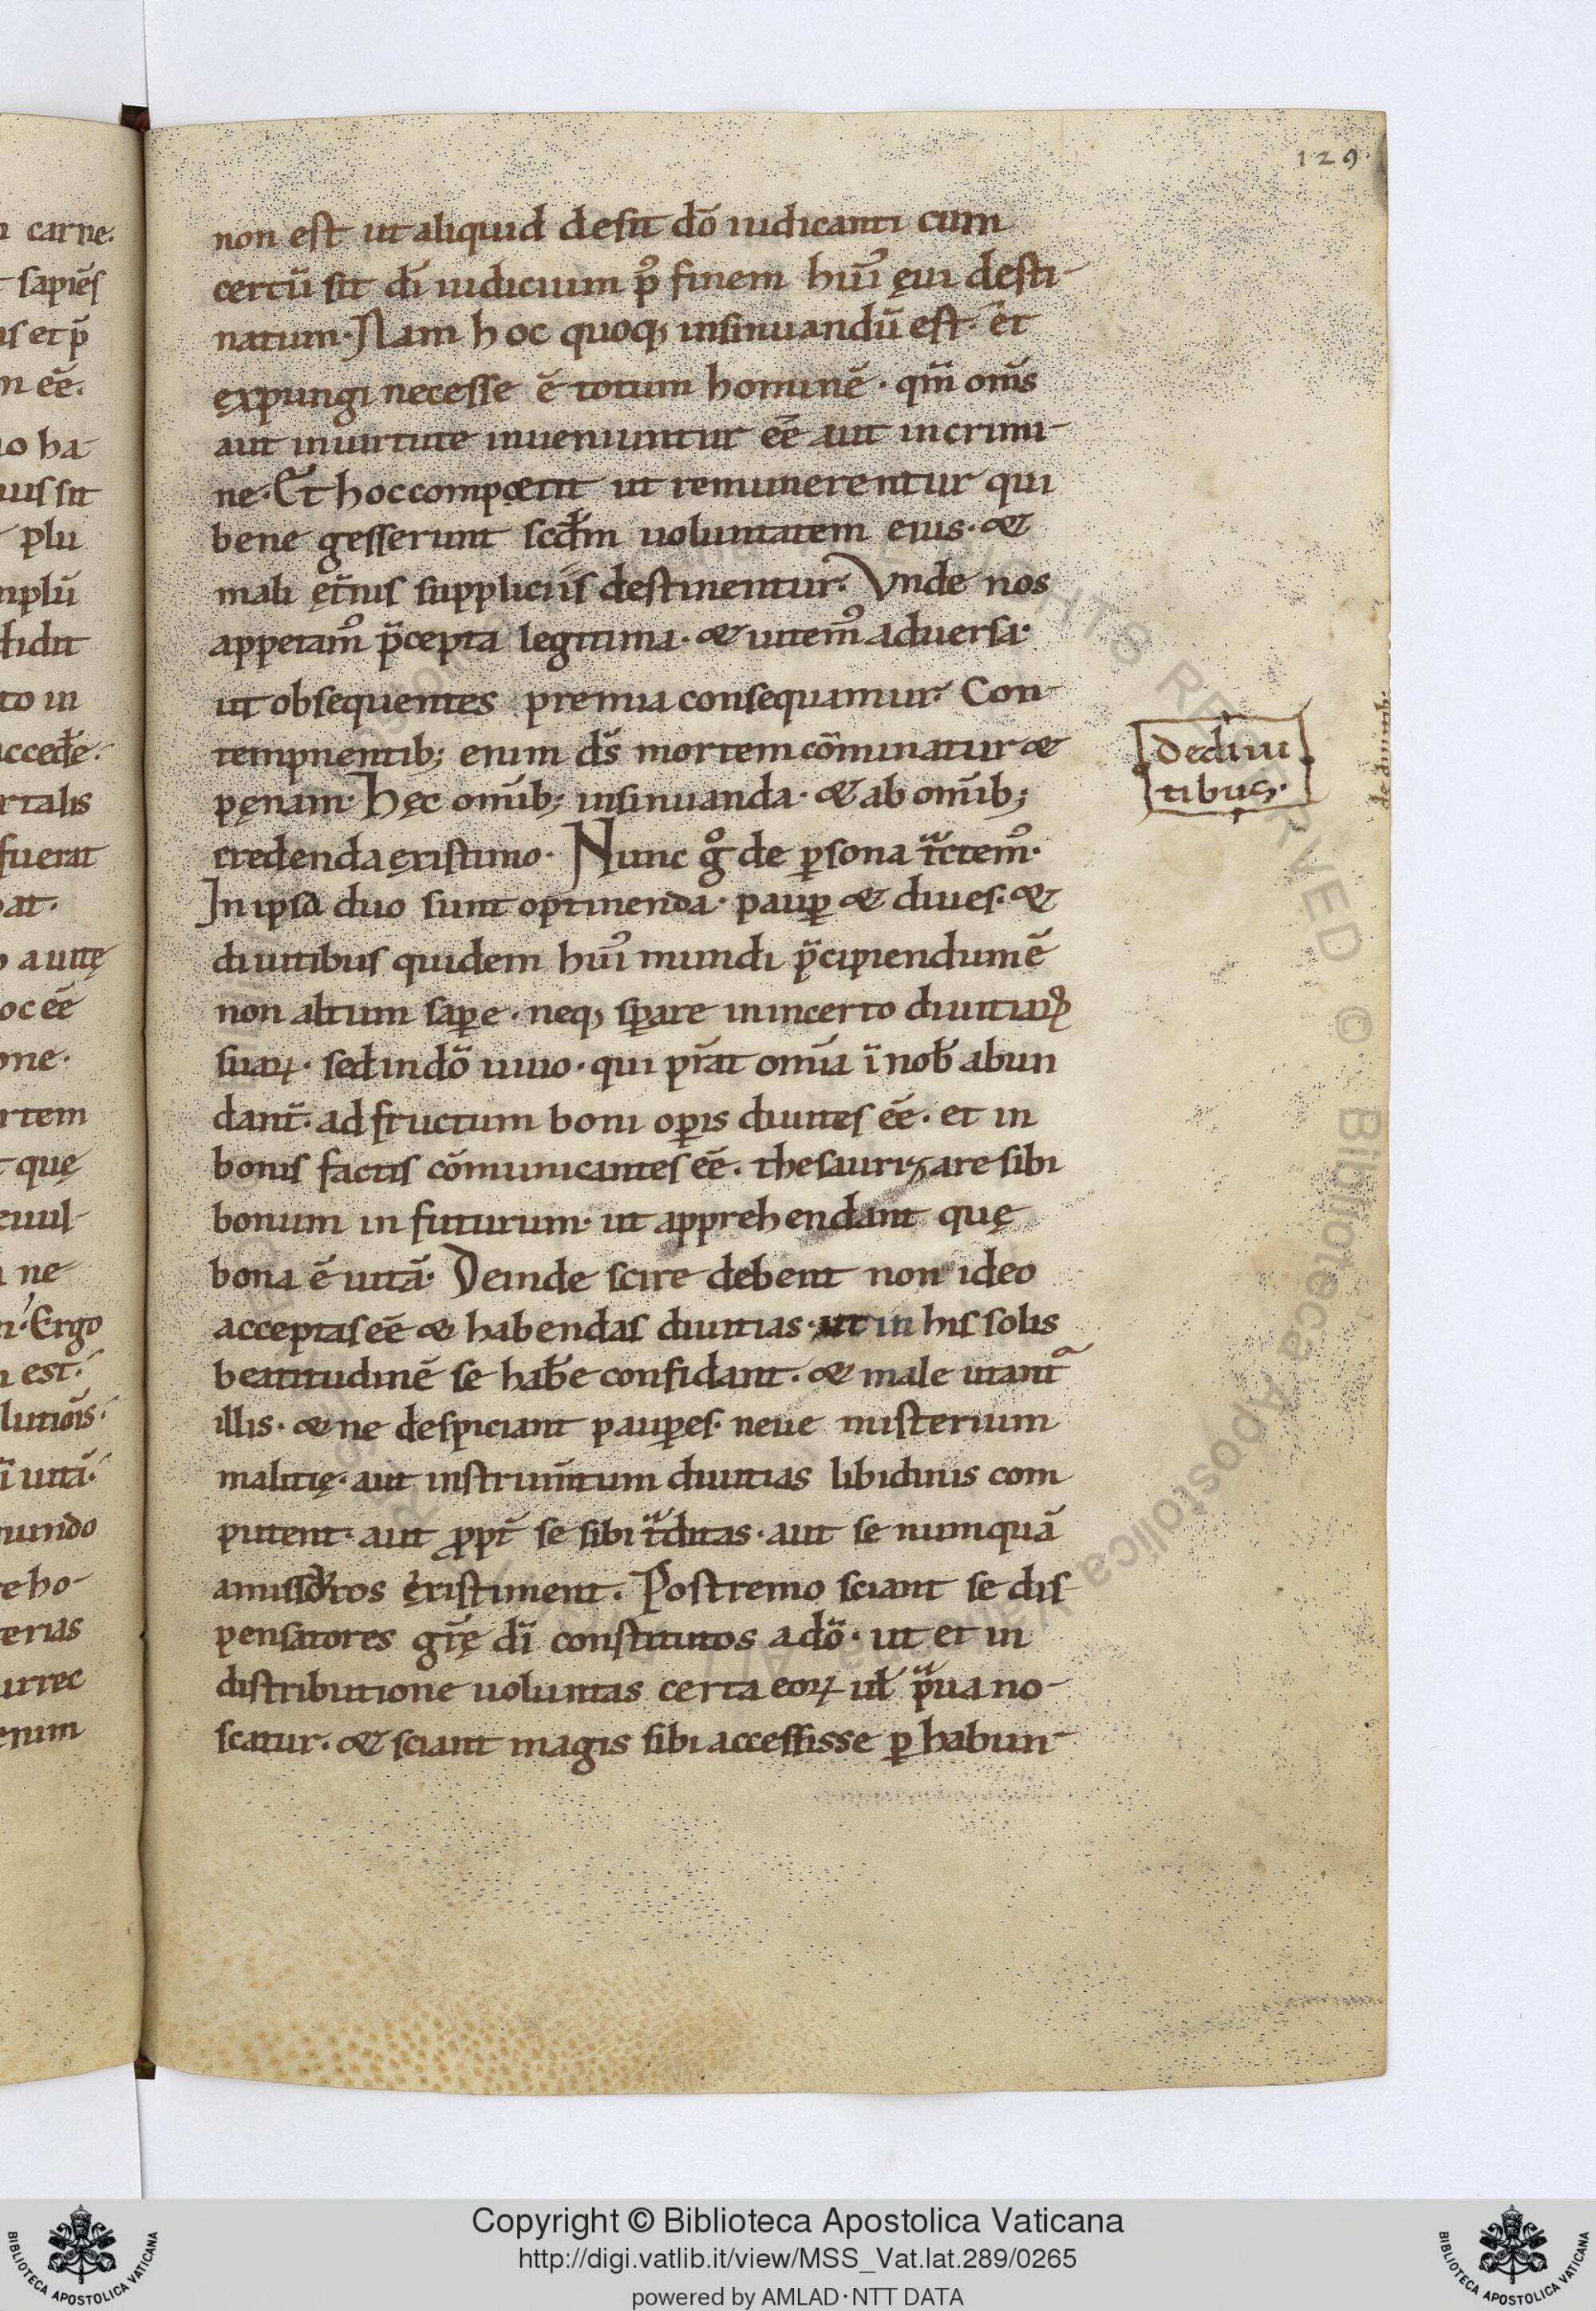 129.
non est ut aliquid desit dō iudicanti cum
certū sit dī iudicium p᷒ finem hui᷒ ęui desti-
natum. Nam hoc quoq; insinuandū est. et
expungi necesse ē totum hominē. qm̄ om̄s
aut in uirtute inueniuntur eē aut in crimi-
ne. Et hoc compoetit ut remunerentur qui
bene gesserunt scd̄m uoluntatem eius. &
mali ęt̄nis suppliciis destinentur. Vnde nos
appetam᷒ p̄cepta legitima. & uitem᷒ aduersa.
ut obsequentes premia consequamur. Con-
tempnentib; enim ds̄ mortem cōminatur &
pęnam. Hęc om̄ib; insinuanda. & ab om̄ib;
credenda ęxistimo. Nunc gͦ de ꝑsona tͣctem᷒.
In ipsa duo sunt optinenda. pauꝑ & diues. &
diuitibus quidem hui᷒ mundi p̄cipiendum ē
non altum saꝑe. neq; sꝑare in incerto diuitiaꝝ
suaꝝ. sed in dō uiuo. qui p̄rat om̄ia ī nob̄ abun
dant̄. ad fructum boni oꝑis diuites eē. et in
bonis factis cōmunicantes eē. thesaurizare sibi
bonum in futurum. ut apprehendant quę
bona ē uitā. Deinde scire debent non ideo
acceptas eē & habendas diuitias. ut in his solis
beatitudinē se hab̄e confidant. & male utant᷒
illis. & ne despiciant pauꝑes. neue misterium
malitię. aut instrum̄tum diuitias libidinis com
putent. aut ꝓpt̄ se sibi tͣditas. aut se numquā
amissuros ęxistiment. Postremo sciant se dis
pensatores gr̄ę dī constitutos a dō. ut et in
distributione uoluntas certa eoꝝ ul̄ pͣua no-
scatur. & sciant magis sibi accessisse ꝑ habun-
de diui
tibus.
Copyright © Biblioteca Apostolica Vaticana
http://digi.vatlib.it/view/MSS_Vat.lat.289/0265
powered by AMLAD·NTT DATA